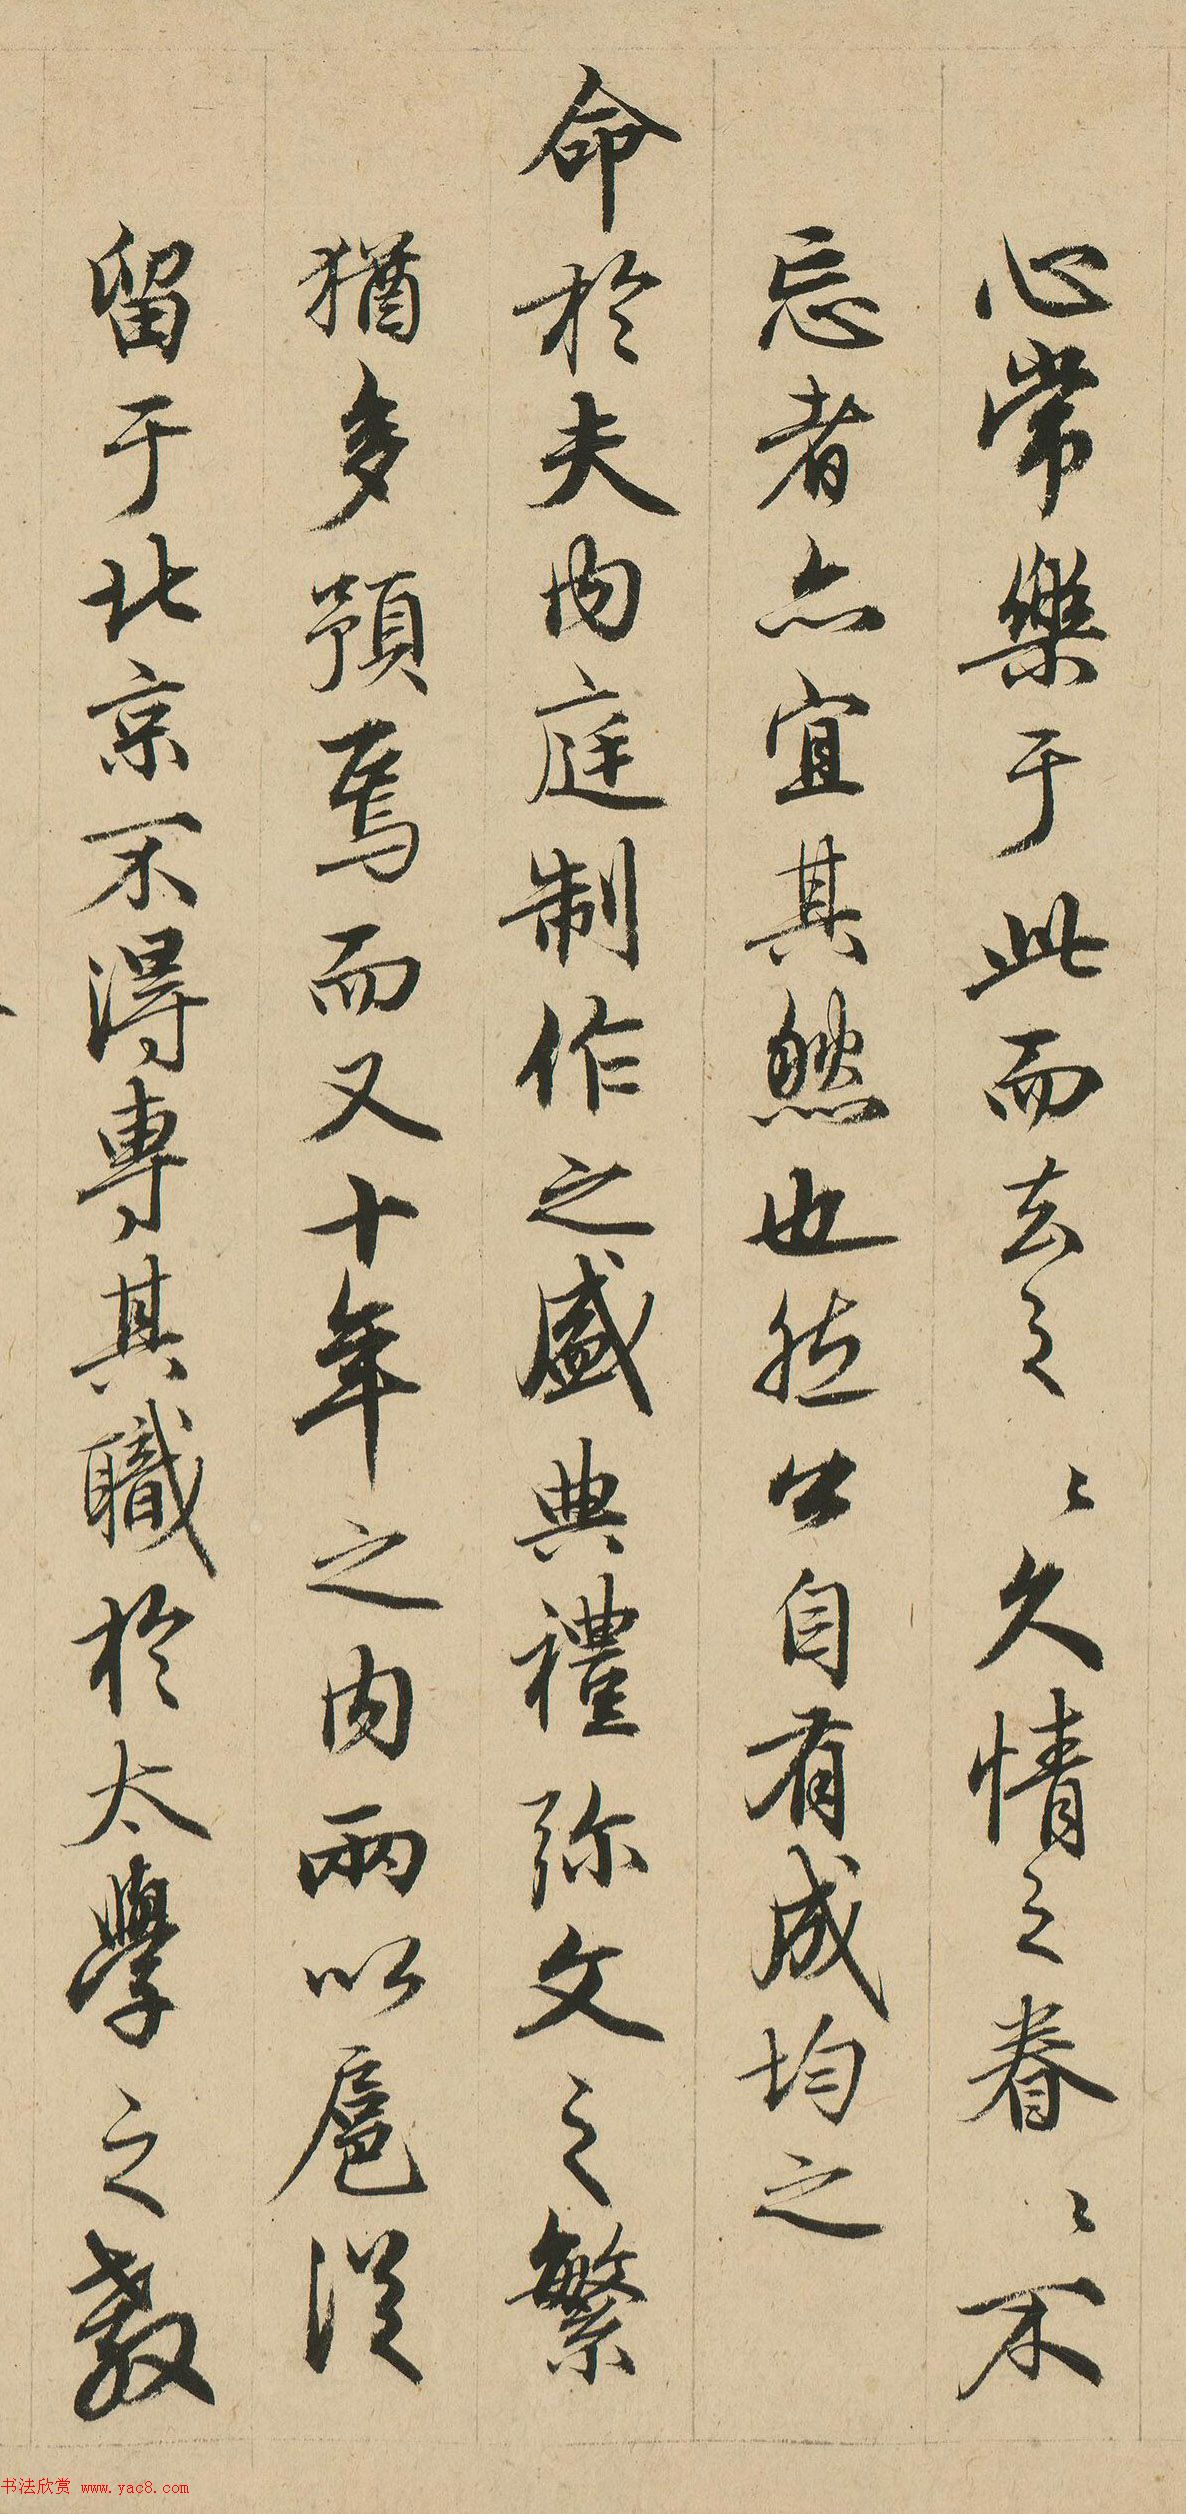 心常樂于此而去之〻久情之眷〻不
忘者亦宜其然也然公自有成均之
命於夫內庭制作之盛典禮弥文之繁
猶多預焉而又十年之內兩以扈從
留于北京不得專其職於太學之教
书法欣赏 www.yac8.com